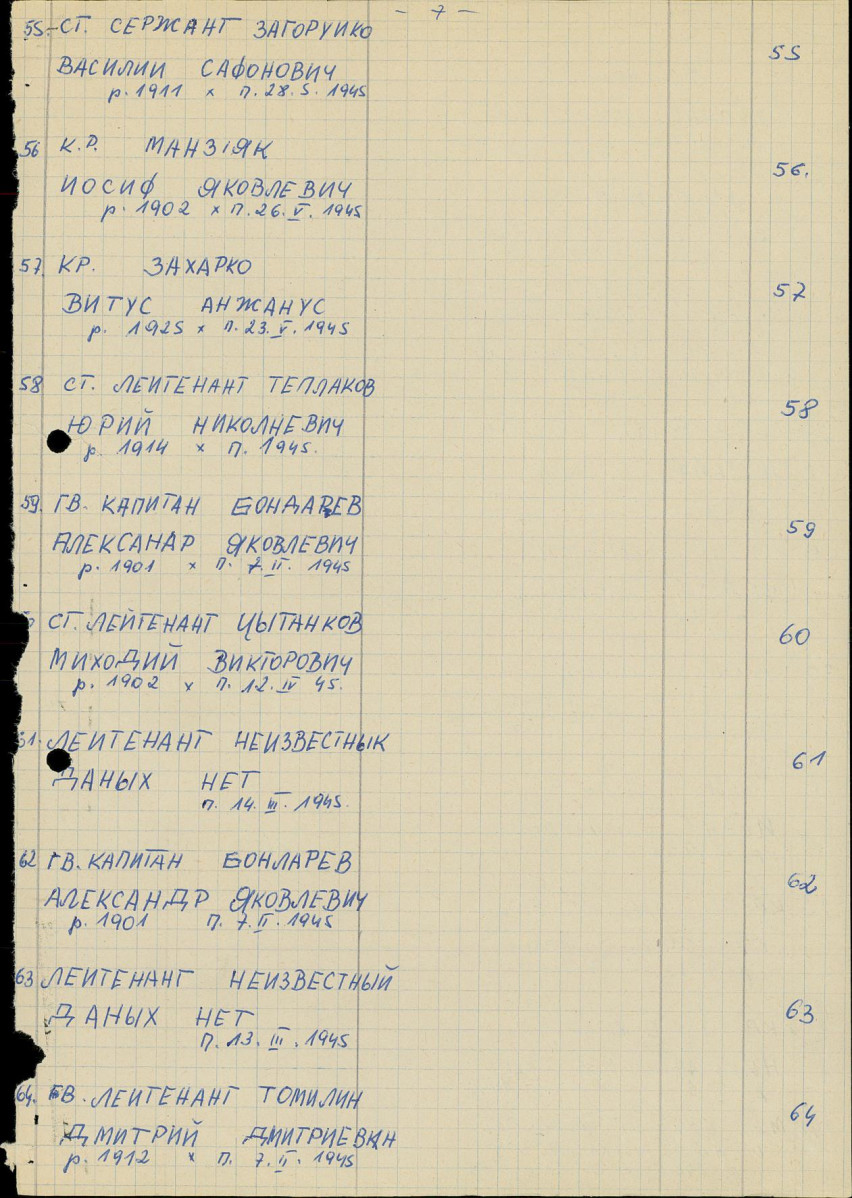 - 7 -
55- СТ. СЕРЖАНТ ЗАГОРУИКО
55
ВАСИЛИИ САФОНОВИЧ
р. 1911 x П. 28. 5. 1945
56 К.Р. МАНЗІЯК
56.
ИОСИФ ЯКОВЛЕВИЧ
р. 1902 x П. 26. V. 1945
57. КР. ЗАХАРКО
57
ВИТУС АНЖАНУС
р. 1925 x П. 23. V. 1945
58 СТ. ЛЕИТЕНАНТ ТЕПЛАКОВ
58
ЮРИЙ НИКОЛНЕВИЧ
р. 1914 x П. 1945.
59. ГВ. КАПИТАН БОНДАРЕВ
59
АЛЕКСАНДР ЯКОВЛЕВИЧ
р. 1901 x П. 7. II. 1945
СТ. ЛЕЙТЕНАНТ ЦЫТАНКОВ
60
МИХОДИЙ ВИКТОРОВИЧ
р. 1902 x П. 12. IV 45.
ЛЕИТЕНАНТ НЕИЗВЕСТНЫК
61
ДАНЫХ НЕТ
П. 14. III. 1945.
62 ГВ. КАПИТАН БОНЛАРЕВ
62
АЛЕКСАНДР ЯКОВЛЕВИЧ
р. 1901 П. 7. II. 1945
63 ЛЕИТЕНАНТ НЕИЗВЕСТНЫЙ
63
ДАНЫХ НЕТ
П. 13. III. 1945
64. ГВ. ЛЕИТЕНАНТ ТОМИЛИН
64
ДМИТРИЙ ДМИТРИЕВИЧ
р. 1912 x П. 7. II. 1945